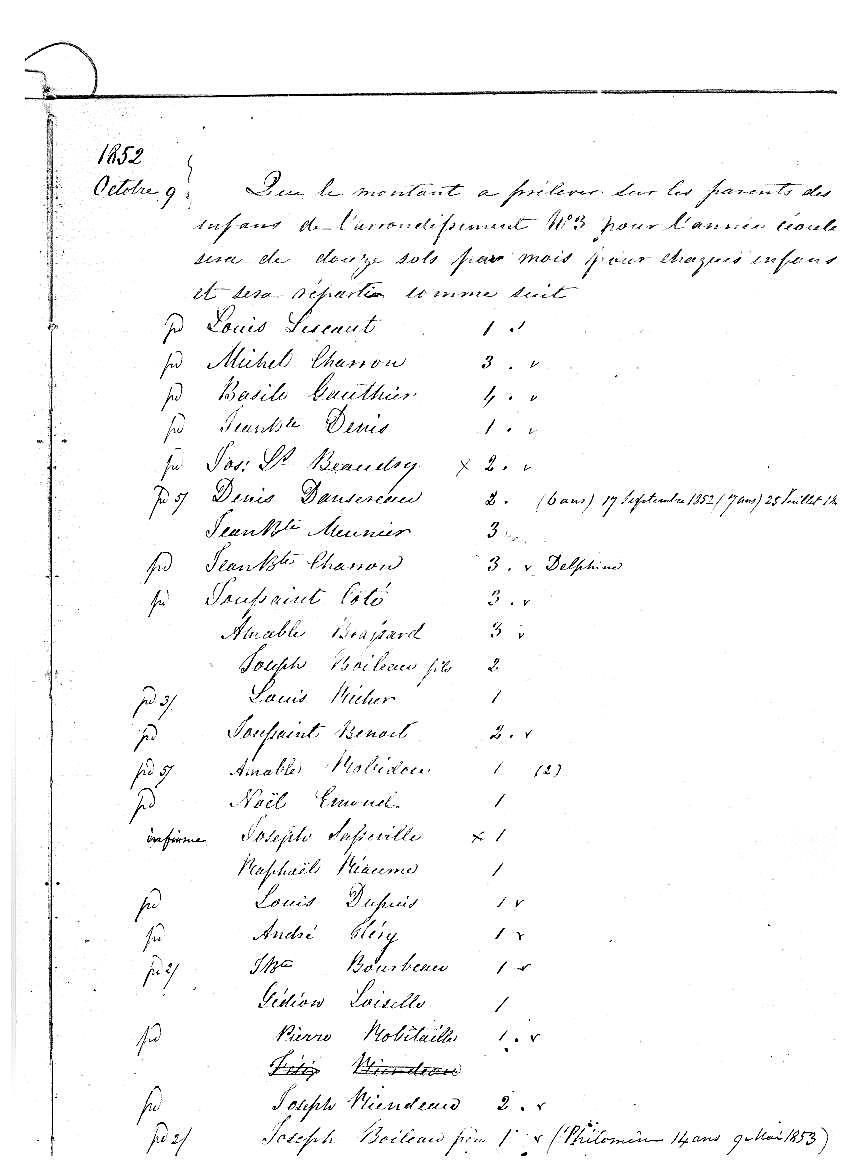 1852
Octobre 9 Que le montant a prélever sur les parents des
enfans de l'arrondissement N° 3 pour l'année écoulé
sera de douze sols par mois pour chaques enfans
et sera répartie comme suit
pd Louis 1 . v
pd Michel Charron 3 . v
pd Basile Gauthier 4 . v
pd JeanBte Denis 1 . v
pd Jos: St Beaudry x 2 . v
pd 5/ Denis Dansereau 2 . (6 ans) 17 Septembre 1852 (7 ans) 25 Juillet
JeanBte Meunier 3
pd JeanBte Charron 3 . v Delphine
pd Toussaint Coté 3 . v
Amable 3 v
Joseph Boileau fils 2
pd 3/ Louis Richer 1
pd Toussaint Benoit 2 . v
pd 5/ Amable Robidou 1 (2)
pd Noël Emond 1
infirme Joseph Lasseville x 1
Raphaël Réaume 1
pd Louis Dupuis 1 v
pd André Fléry 1 v
pd 2/ JBte Bourbeau 1 v
Gédéon Loiselle 1
pd Pierre Robitaille 1 . v
Félix Riendeau
pd Joseph Riendeau 2 . v
pd 2/ Joseph Boileau père 1 v (Philomène 14 ans 9 Mai 1853)